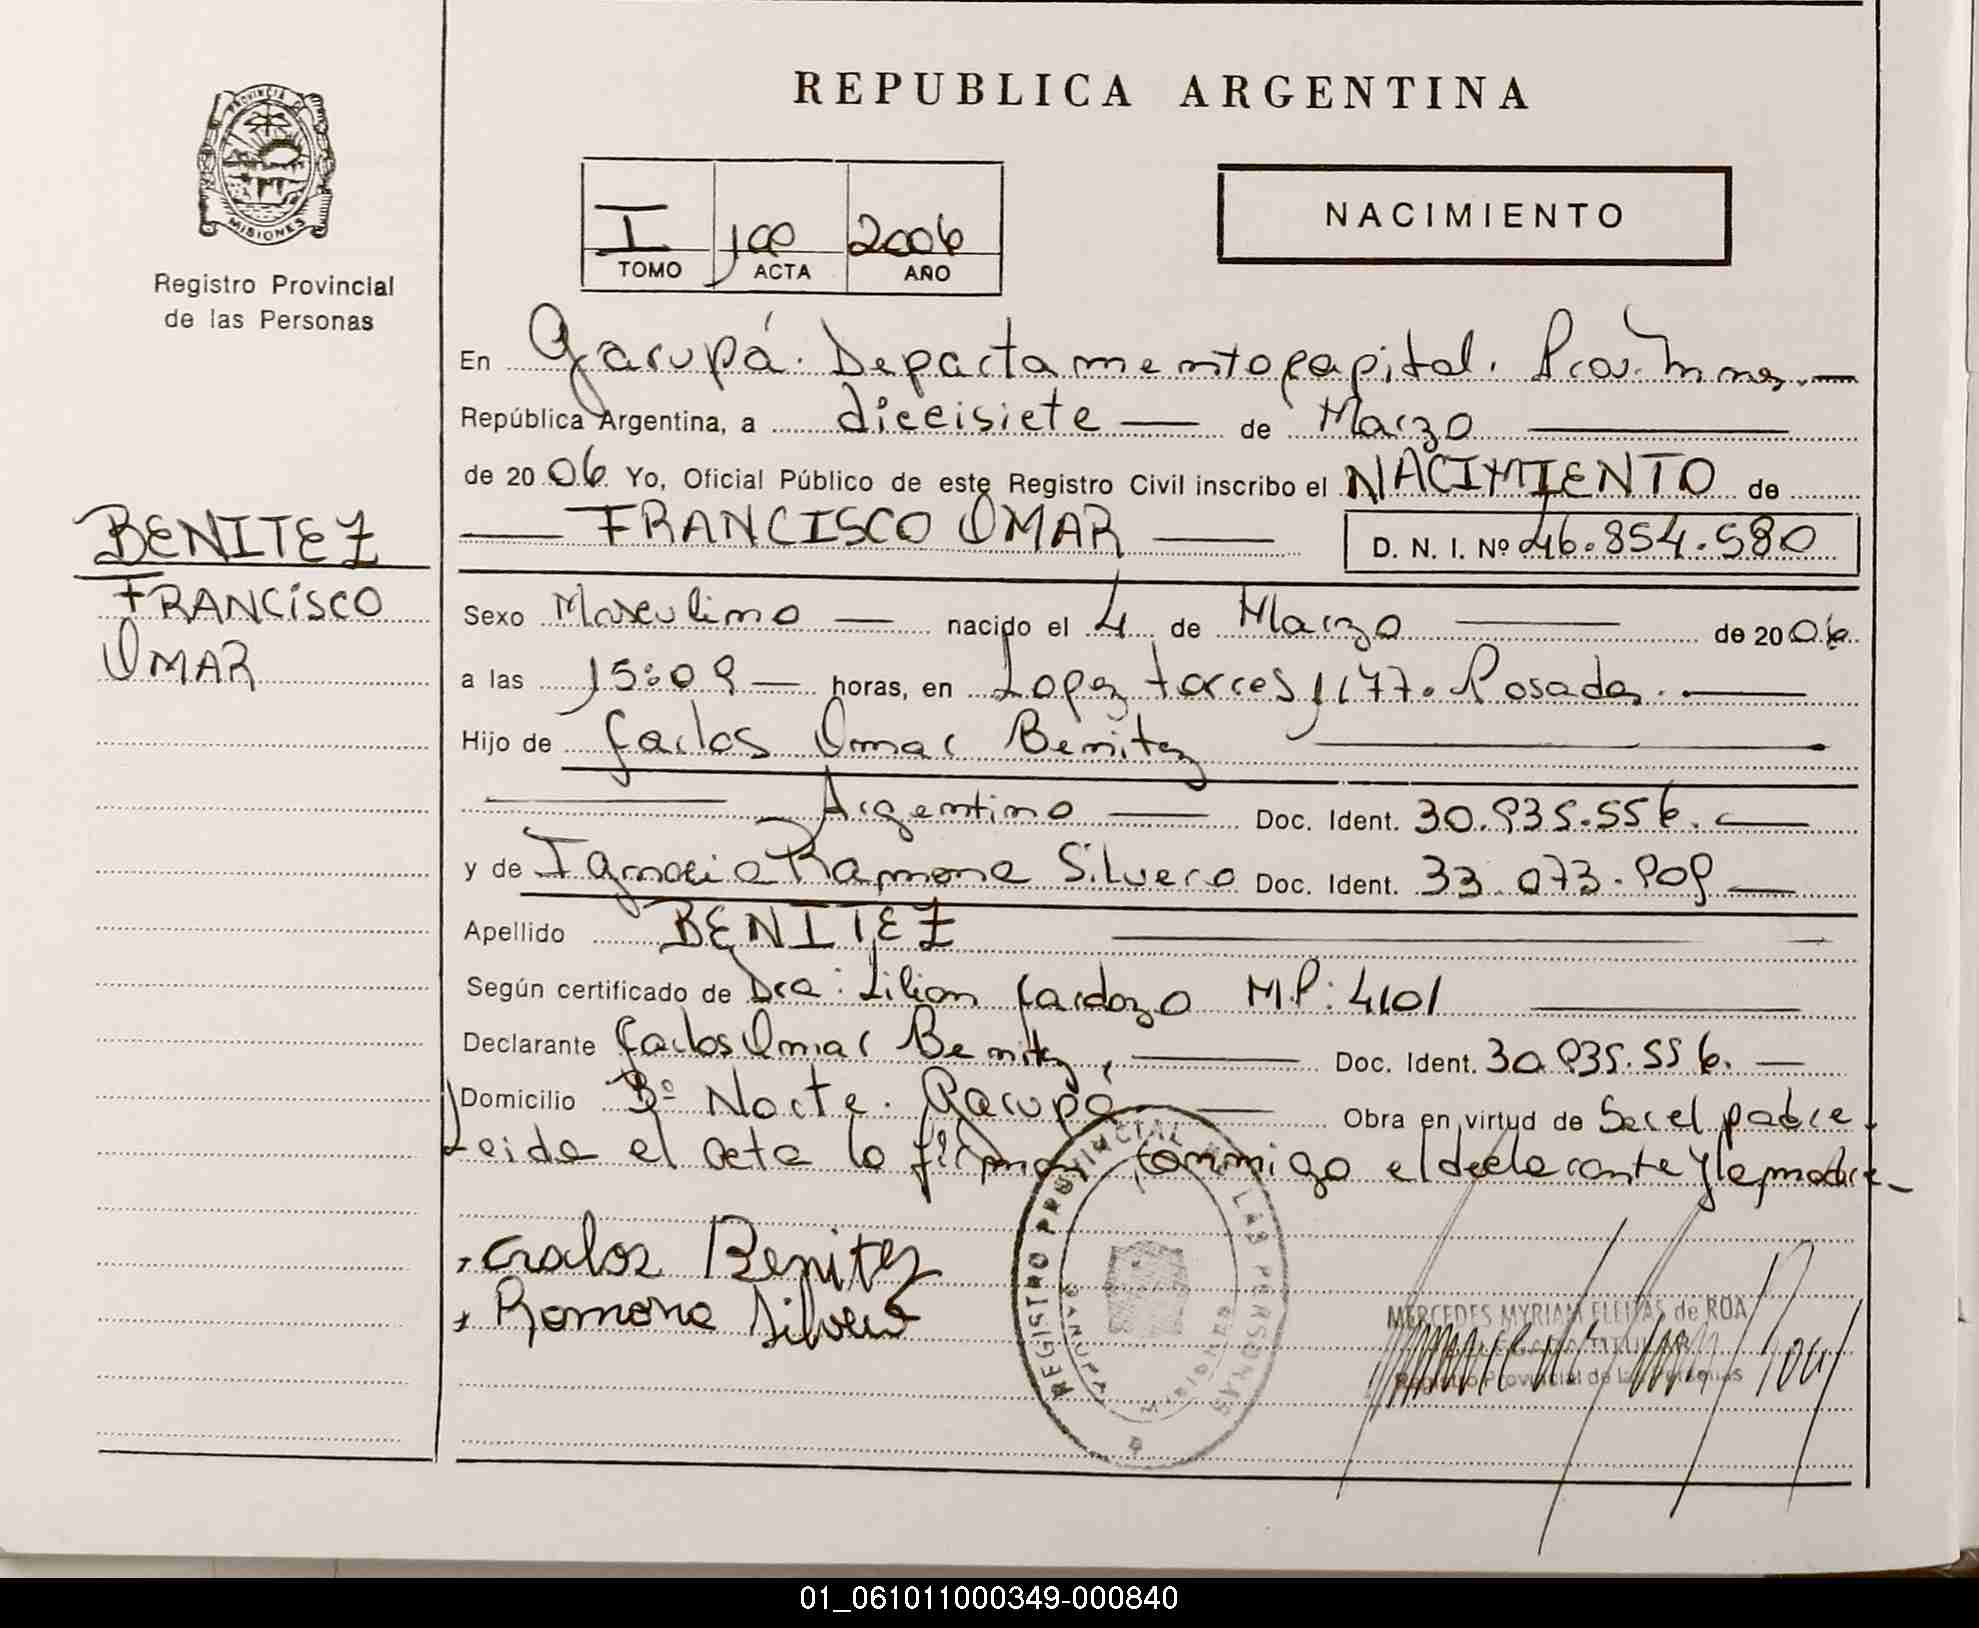 REPUBLICA ARGENTINA
PROVINCIA DE
MISIONES
Registro Provincial
de las Personas
I 100 2006
TOMO ACTA AÑO
NACIMIENTO
En Garupá. Departamento Capital. Prov. Mnes.—
República Argentina, a diecisiete — de Marzo —
de 2006. Yo, Oficial Público de este Registro Civil inscribo el NACIMIENTO de
— FRANCISCO OMAR — D. N. I. Nº 46.854.580
BENITEZ
FRANCISCO
OMAR
Sexo Masculino — nacido el 4 de Marzo — de 2006
a las 15:09 — horas, en Lopez torres 1177. Posadas. —
Hijo de Carlos Omar Benitez —
— Argentino — Doc. Ident. 30.935.556. —
y de Ignacia Ramona Silvero Doc. Ident. 33.073.909 —
Apellido BENITEZ —
Según certificado de Dra: Lilian Cardozo M.P: 4101 —
Declarante Carlos Omar Benitez, — Doc. Ident. 30.935.556. —
Domicilio Bº Norte. Garupá — Obra en virtud de Ser el padre.
Leida el acta la firman conmigo el declarante y la madre—
Carlos Benitez
Ramona Silvero
REGISTRO PROVINCIAL DE LAS PERSONAS
GARUPA
MISIONES
MERCEDES MYRIAM FLEITAS de ROA
Registro Provincial de las Personas
01_061011000349-000840